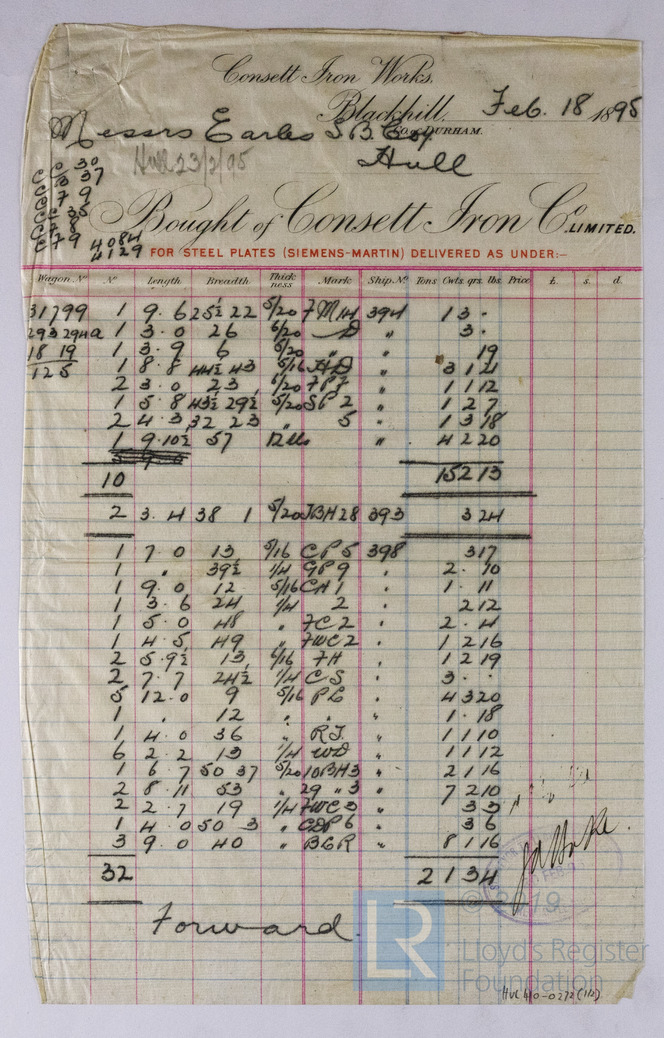 Consett Iron Works.
Blackhill, Feb. 18 1895
Co. DURHAM.
Messrs Earles S. B. Coy.
Hull 23/2/95
Hull
Bought of Consett Iron Co. LIMITED.
4084
4129
FOR STEEL PLATES (SIEMENS-MARTIN) DELIVERED AS UNDER:-
Wagon. No. No. Length. Breadth. Thickness Mark. Ship. No. Tons Cwts. qrs. lbs. Price £. s. d.
31799 1 9. 6 25½ 22 5/20 7M14 394 1 3 .
293 294a 1 3. 0 26 6/20 D " 3 .
18 19 1 3. 9 6 5/20 " " 19
125 1 8. 8 44½ 43 5/16 "
2 3. 0 23 6/20 7P7 " 1 1 12
1 5. 8 43½ 29½ 5/20 SP 2 " 1 2 7
2 4. 3 32 23 " 5 " 1 3 18
1 9. 10½ 57 12 lbs " 4 2 20
10 15 2 13
2 3. 4 38 1 5/20 JBH 28 393 3 24
1 7. 0 13 5/16 CP 5 398 3 17
1 " 39½ 1/4 GP 9 " 2 . 10
1 9. 0 12 5/16 CA 1 " 1 . 11
1 3. 6 24 1/4 2 " 2 12
1 5. 0 48 " 7C 2 " 2 . 4
1 4. 5 49 " 7WC 2 " 1 2 16
2 5. 9½ 13 6/16 7H " 1 2 19
2 7. 7 24½ 1/4 CS " 3 . .
5 12. 0 9 5/16 PC " 4 3 20
1 " 12 " " " 1 . 18
1 4. 0 36 " RJ. " 1 1 10
6 2. 2 13 1/4 WD " 1 1 12
1 6. 7 50 37 5/20 10BH3 " 2 1 16
2 8. 11 53 " 29 " 3 " 7 2 10
2 2. 7 19 1/4 7WC 3 " 3 3
1 4. 0 50 3 " CDP 6 " 3 6
3 9. 0 40 " BCR " 8 1 16
32 2 1 3 4
Forward.
© 2019
LR Lloyd's Register
Foundation
HUL 410-0272 (1/2)